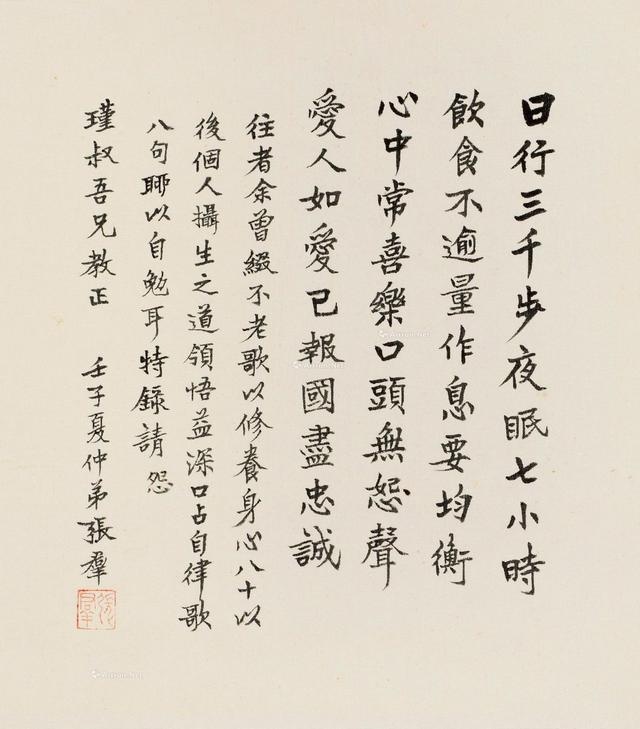 日行三千步夜眠七小時
飲食不逾量作息要均衡
心中常喜樂口頭無怨聲
愛人如愛己報國盡忠誠
往者余曾綴不老歌以修養身心八十以
後個人攝生之道領悟益深口占自律歌
八句聊以自勉耳特錄請 怨
瑾叔吾兄教正 壬子夏仲弟張羣